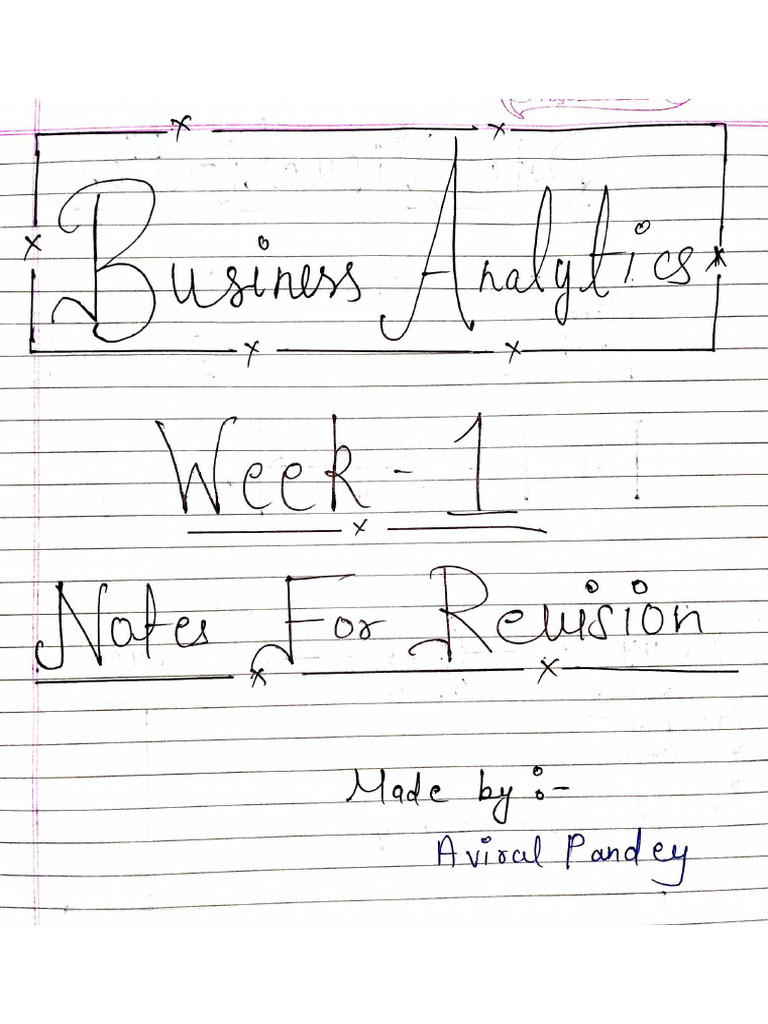 Business Analytics
Week - 1
Notes For Revision
Made by :-
Aviral Pandey